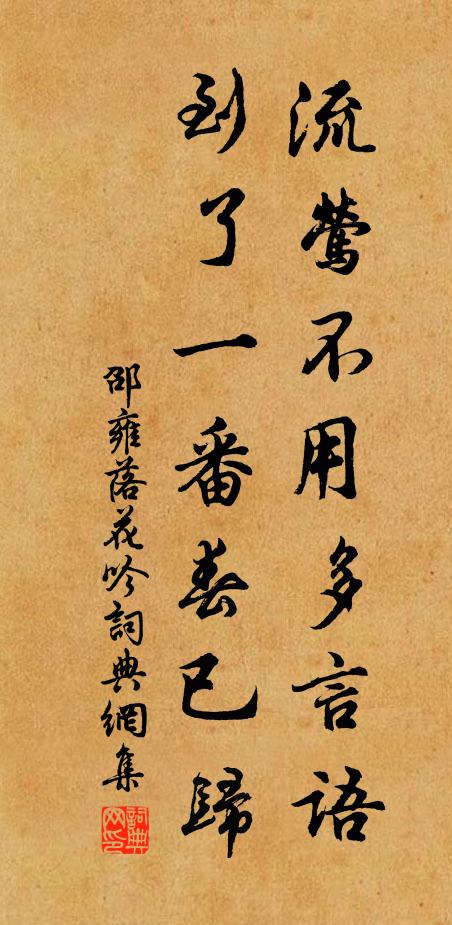 流鶯不用多言語
到了一番春已歸
邵雍落花吟詞典網集
詞典网印